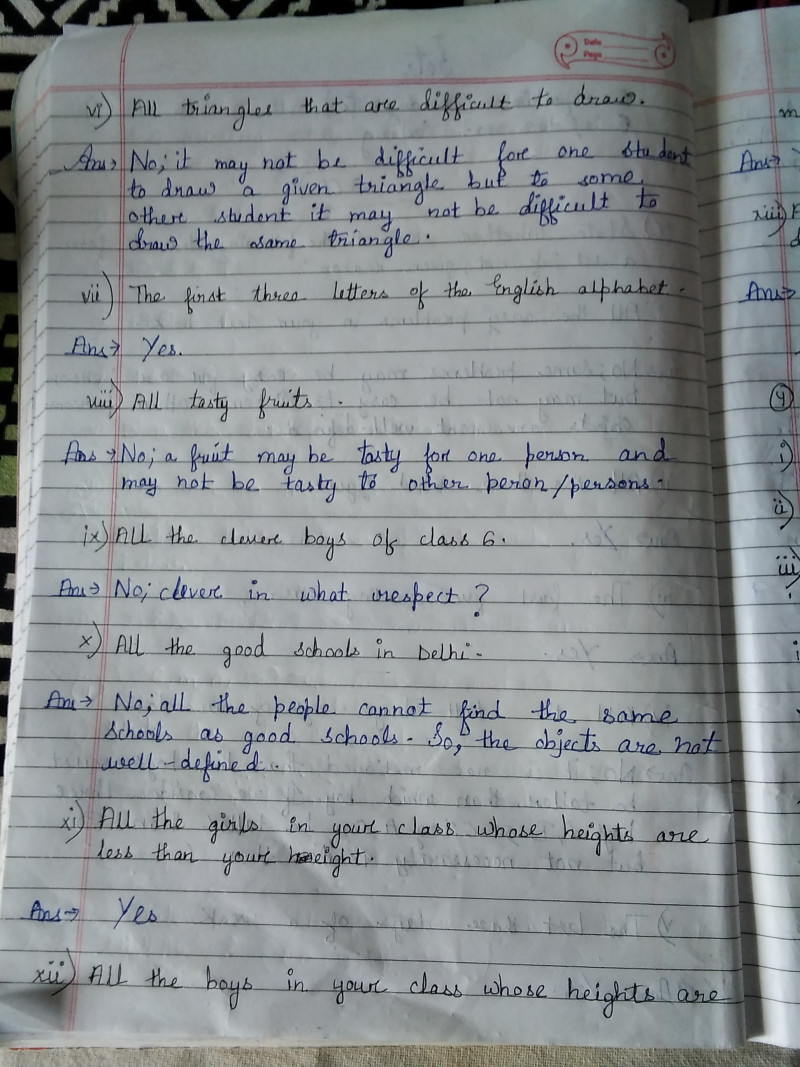 Date
Page
vi) All triangles that are difficult to draw.
Ans→ No; it may not be difficult fore one student
to draw a given triangle but to some
othere student it may not be difficult to
draw the same triangle.
vii) The first three letters of the English alphabet.
Ans→ Yes.
viii) All tasty fruits.
Ans→ No; a fruit may be tasty for one person and
may not be tasty to other peron/persons.
ix) All the clevere boys of class 6.
Ans→ No; clevere in what respect?
x) All the good schools in Delhi.
Ans→ No; all the people cannot find the same
schools as good schools. So, the objects are not
well-defined.
xi) All the girls in youre class whose heights are
less than youre height.
Ans→ Yes
xii) All the boys in youre class whose heights are
m
Ans→
xiii) F
d
Ans→
4
i)
ii)
iii)
i